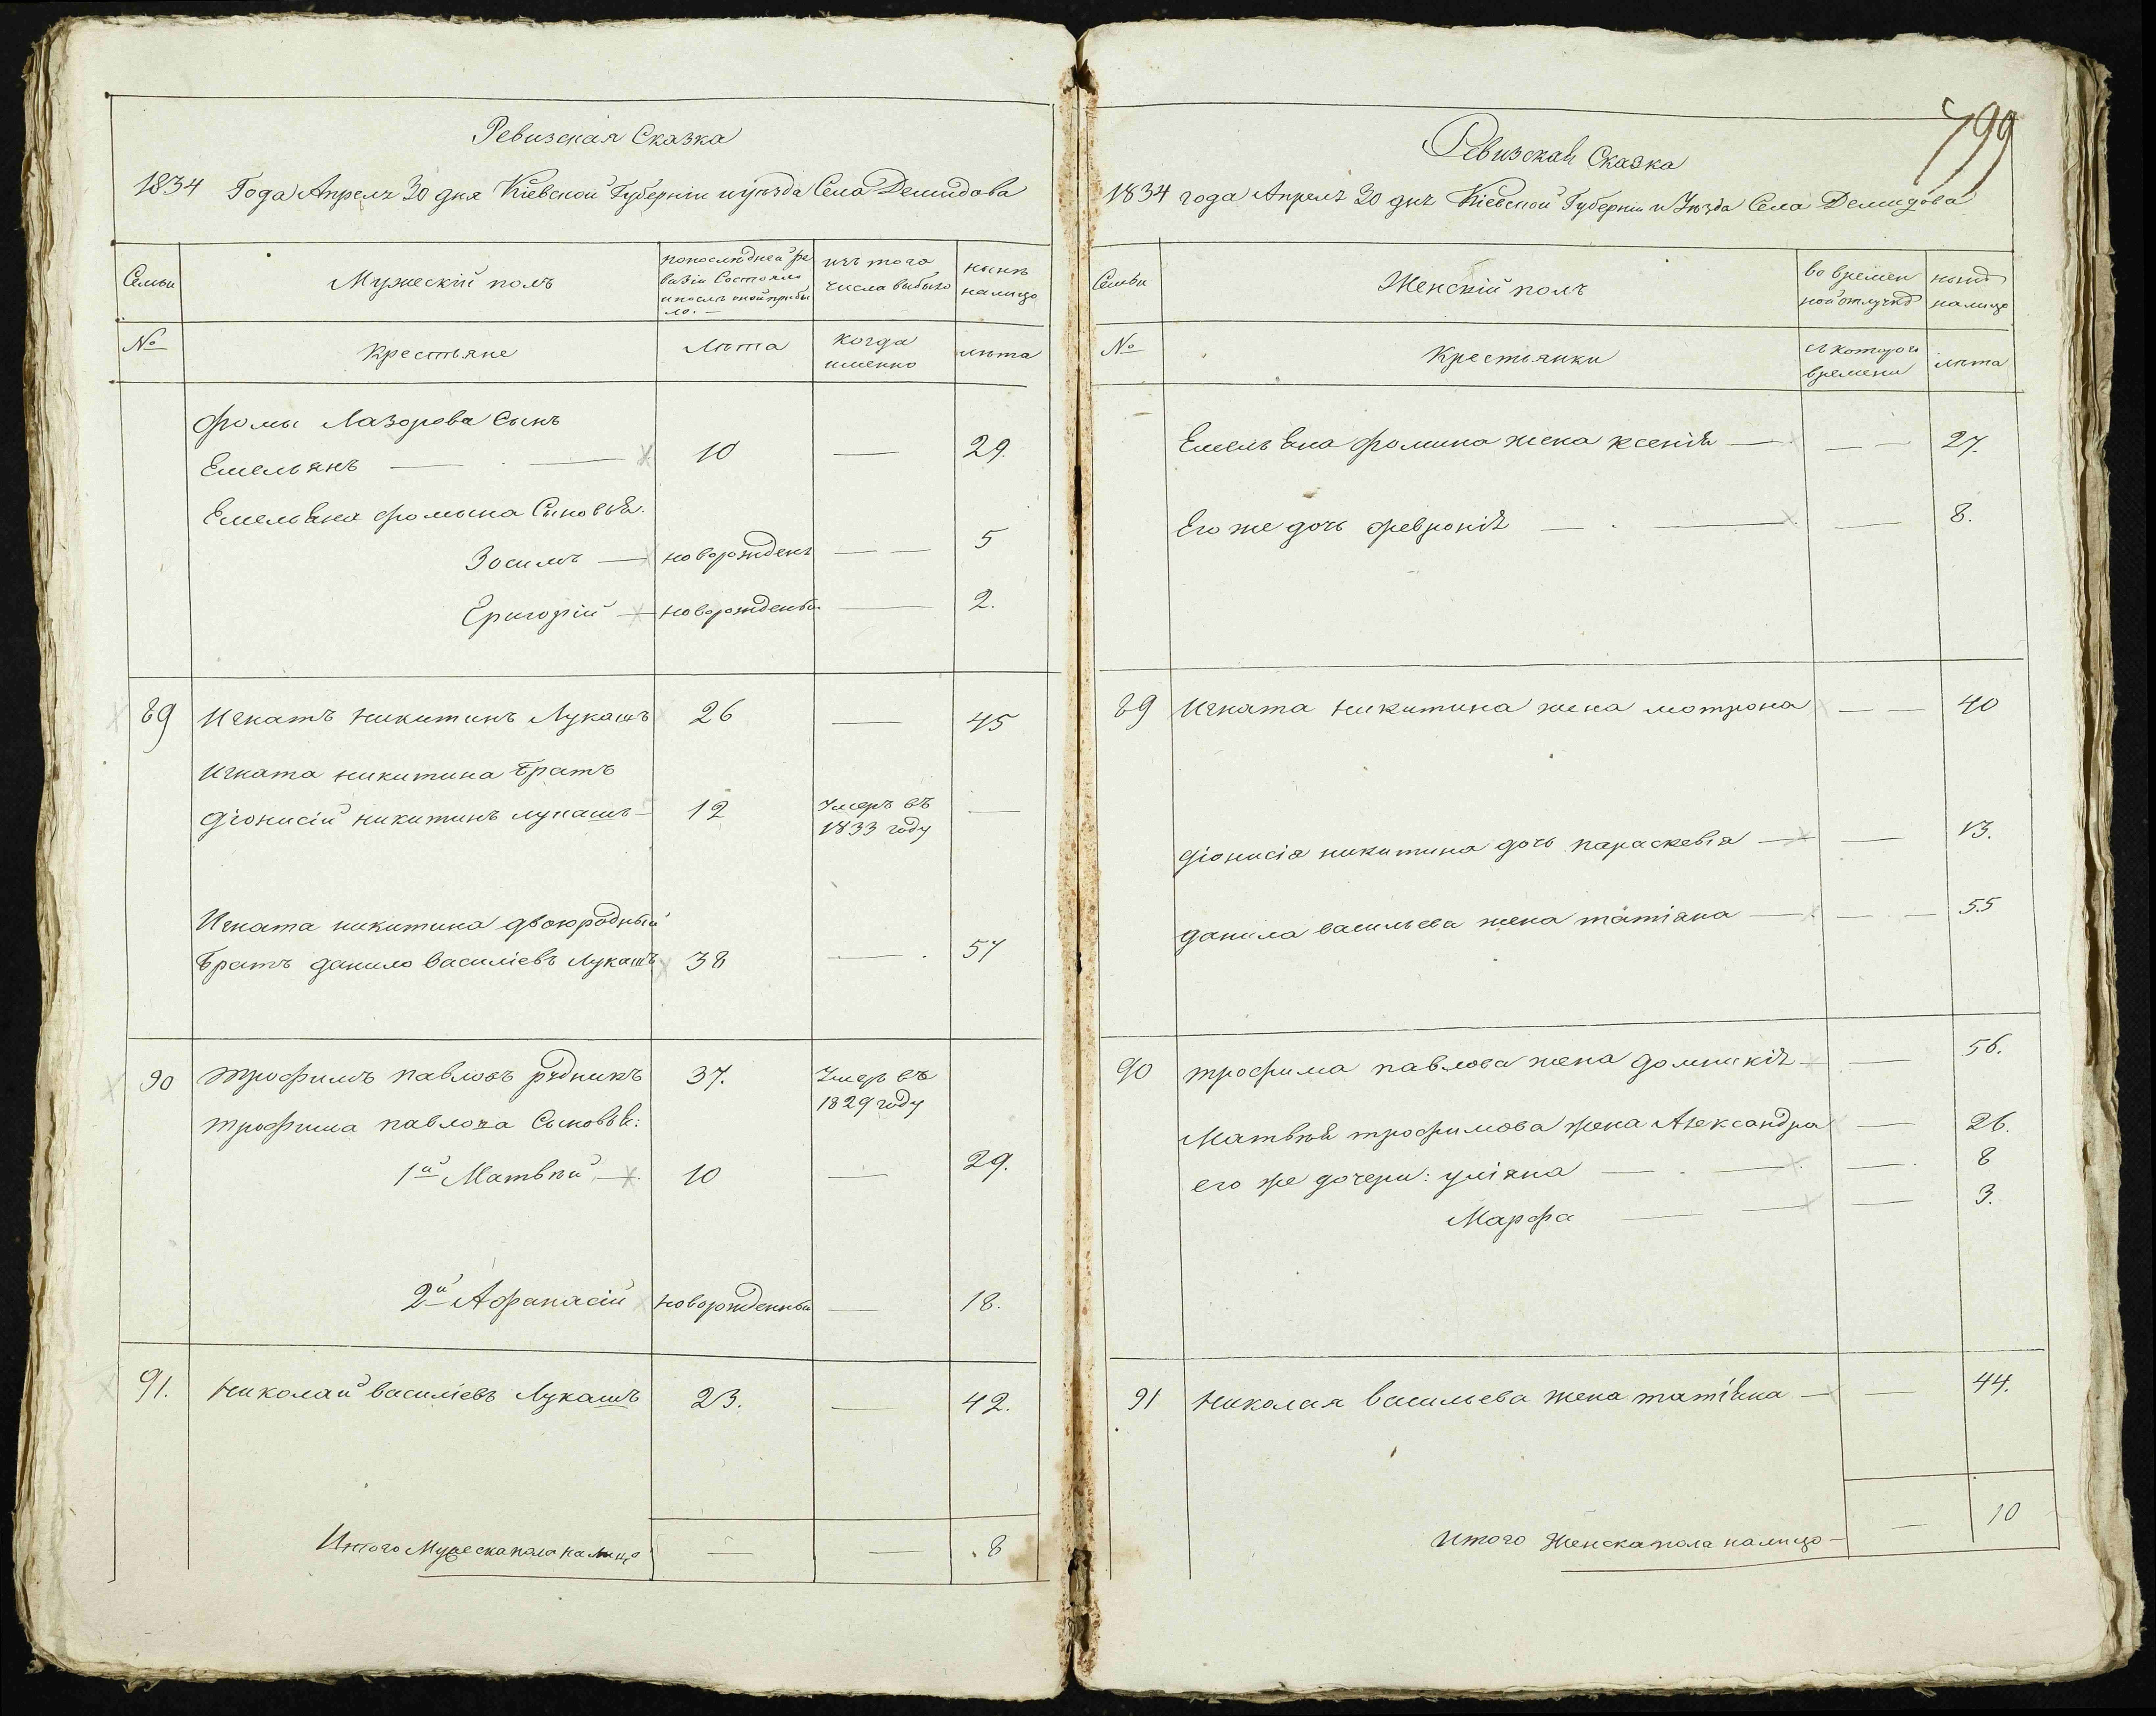 Ревизская Сказка
1834 Года Апреля 30 дня Кіевской Губерніи и уѣзда Села Демидова
Семьи
Мужескій полъ
по послѣдней ре
визіи состояло
и послѣ оной прибы
ло. —
изъ того
числа выбыло
нынѣ
налицо
№
Крестьяне
Лѣта
когда
именно
лѣта
Фомы Лазорова Сынъ
Емельянъ — — 10 — 29.
Емельяна Фомина Сыновья.
Зосимъ — новорожденъ — — 5
Григорій — новорожденый — 2.
89 Игнатъ Никитинъ Лукашъ 26 — 45
Игната Никитина Братъ
Діонисій Никитинъ Лукашъ — 12 Умеръ въ
1833 году —
Игната Никитина двоюродный
Братъ Данило Василіевъ Лукашъ 38 — 57
90 Трофимъ Павловъ Рудникъ 37. Умеръ въ
1829 году
Трофима Павлова Сыновья:
1й Матвѣй — 10 — 29.
2й Афанасій новорожденный — 18.
91. Николай Василіевъ Лукашъ 23. — 42.
Итого Мужеска пола налицо — — 8
799
Ревизская Сказка
1834 года Апреля 30 дня Кіевской Губерніи и Уѣзда Села Демидова
Семьи
Женскій полъ
во времен
ной отлучкѣ
нынѣ
налицо
№
Крестьянки
съ котораго
времени
лѣта
Емельяна Фомина жена Ксенія — — — 27.
Его же дочь Февронія — — — 8.
89 Игната Никитина жена Мотрона — — 40
Діонисія Никитина дочь Параскевія — — 13.
Данила Васильева жена Татіяна — — — 55
90 Трофима Павлова жена Домникія — — 56.
Матвѣя Трофимова жена Александра — 26.
его же дочери: Уліяна — — — 8
Марфа — — — 3.
91 Николая Васильева жена Татіяна — — 44.
Итого Женска пола налицо — — 10